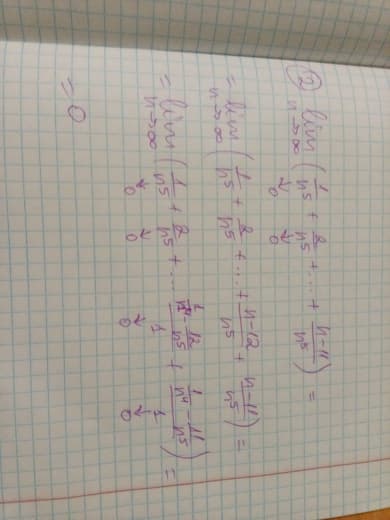 ② lim n→∞ (1/n⁵ + 2/n⁵ + ... + (n-11)/n⁵) =
→0 →0
= lim n→∞ (1/n⁵ + 2/n⁵ + ... + (n-12)/n⁵ + (n-11)/n⁵) =
= lim n→∞ (1/n⁵ + 2/n⁵ + ... + (1/n⁴ - 12/n⁵)/1 + (1/n⁴ - 11/n⁵)/1) =
→0 →0 →0 →0
= 0